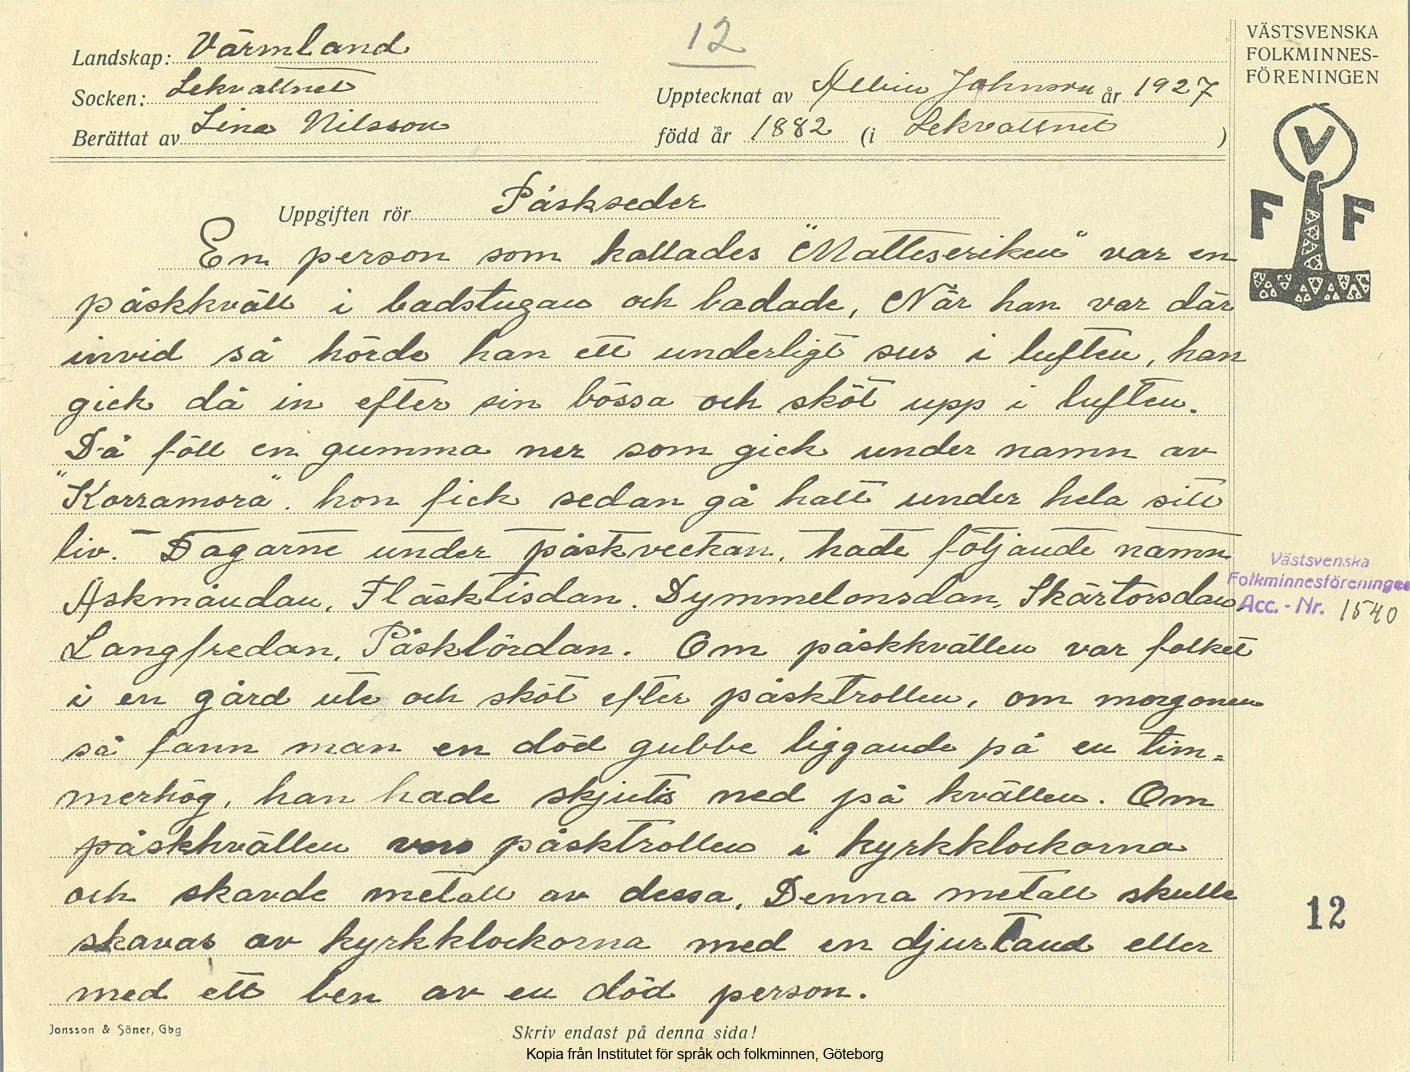 Landskap: Värmland
12
Socken: Lekvattnet
Upptecknat av Albin Johnson år 1927
Berättat av Lina Nilsson
född år 1882 (i Lekvattnet )
VÄSTSVENSKA
FOLKMINNES-
FÖRENINGEN
V
F F
Uppgiften rör Påskseder
En person som kallades "Matteseriken" var en
påskkväll i badstugan och badade, När han var där
invid så hörde han ett underligt sus i luften, han
gick då in efter sin bössa och sköt upp i luften.
Då föll en gumma ner som gick under namn av
"Korramora". hon fick sedan gå halt under hela sitt
liv. – Dagarne under påskveckan, hade följande namn
Askmåndan, Fläsktisdan. Dymmelonsdan, Skärtorsdan,
Langfredan, Påsklördan. Om påskkvällen var folket
i en gård ute och sköt efter påsktrollen, om morgonen
så fann man en död gubbe liggande på en tim=
merhög, han hade skjutis ned på kvällen. Om
påskkvällen voro påsktrollen i kyrkklockorna
och skavde metall av dessa, Denna metall skulle
skavas av kyrkklockorna med en djurtand eller
med ett ben av en död person.
Västsvenska
Folkminnesföreningen
Acc. - Nr. 1540
12
Jonsson & Söner, Gbg
Skriv endast på denna sida!
Kopia från Institutet för språk och folkminnen, Göteborg